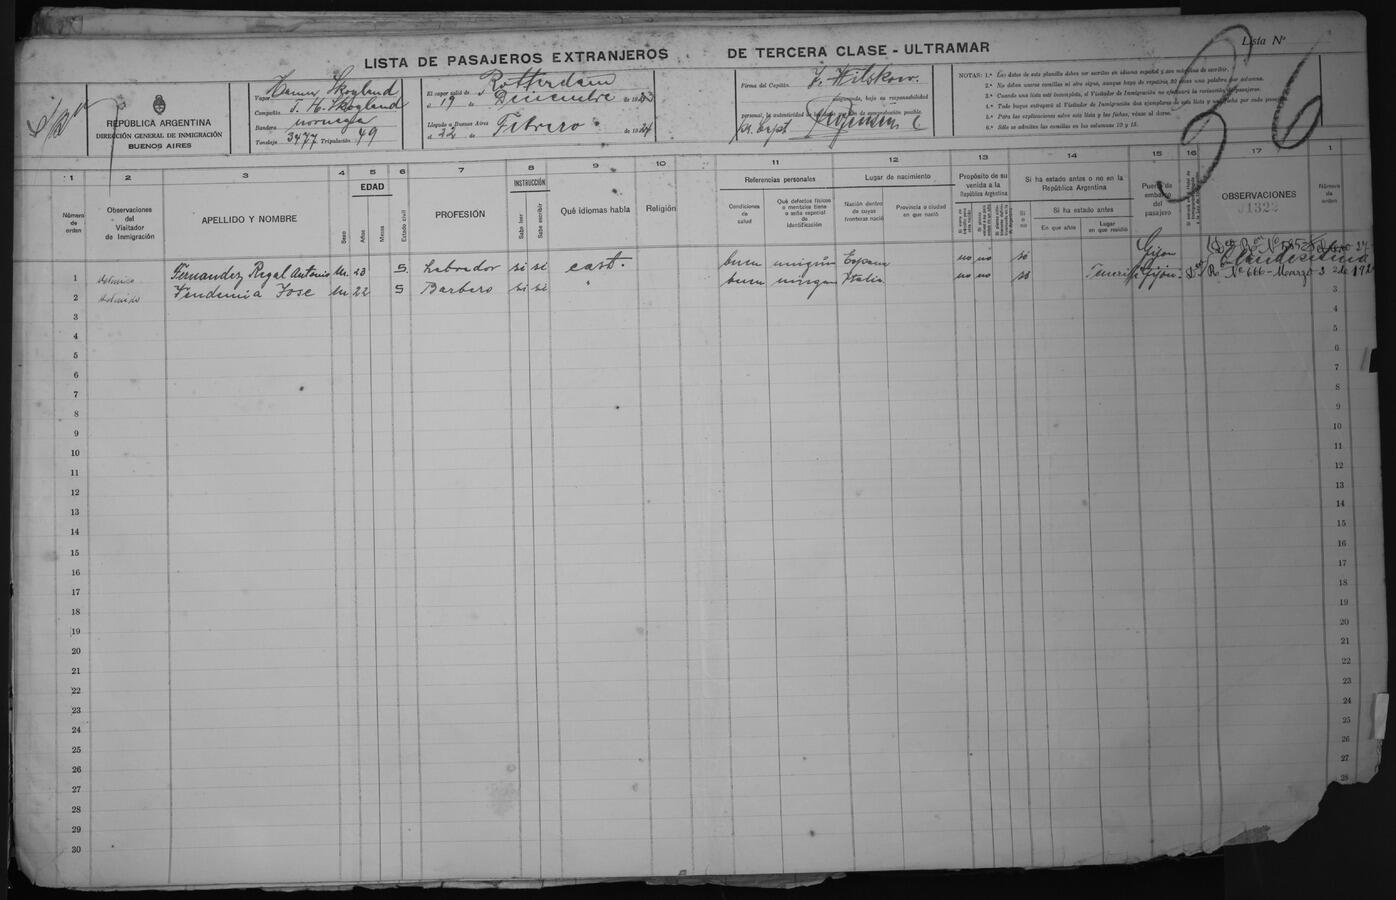 LISTA DE PASAJEROS EXTRANJEROS DE TERCERA CLASE - ULTRAMAR
Lista Nº
36
REPÚBLICA ARGENTINA
DIRECCIÓN GENERAL DE INMIGRACIÓN
BUENOS AIRES
Vapor Hanna Skogland
Compañía T. H. Skogland
Bandera noruega
Tonelaje 3477 Tripulación 49
El vapor salió de Rotterdam
el 19 de Diciembre de 1923
Llegado a Buenos Aires
el 22 de Febrero de 1924
Firma del Capitán J. Wilskow
personal, la autenticidad de
NOTAS: 1.ª Los datos de esta planilla deben ser escritos en idioma español y con máquina de escribir.
2.ª No deben usarse comillas ni otro signo, aunque haya de repetirse 30 veces una palabra por columna.
3.ª Cuando una lista esté incompleta, el Visitador de Inmigración no efectuará la revisación de pasajeros.
4.ª Todo buque entregará al Visitador de Inmigración dos ejemplares de esta lista y una ficha por cada pasajero.
5.ª Para las explicaciones sobre esta lista y las fichas, véase al dorso.
6.ª Sólo se admiten las comillas en las columnas 10 y 15.
1 2 3 4 5 6 7 8 9 10 11 12 13 14 15 16 17 1
Número de orden
Observaciones del Visitador de Inmigración
APELLIDO Y NOMBRE
Sexo
EDAD
Años
Meses
Estado civil
PROFESIÓN
INSTRUCCIÓN
Sabe leer
Sabe escribir
Qué idiomas habla
Religión
Referencias personales
Condiciones de salud
Qué defectos físicos o mentales tiene o seña especial de identificación
Lugar de nacimiento
Nación dentro de cuyas fronteras nació
Provincia o ciudad en que nació
Propósito de su venida a la República Argentina
Si ha estado antes o no en la República Argentina
Si o no
Si ha estado antes
En que años
Lugar en que residió
Puerto de embarco del pasajero
OBSERVACIONES
1322
Número de orden
1 Fernandez Regal Antonio M. 23 S. Labrador si si cast. buen ningún España no no si Gijon Clandestino
2 Vendemia Jose M 22 S Barbero si si " buen ningun Italia no no si Tenerife Gijon Rº Nº 666 - Marzo 3 de 192
3 3
4 4
5 5
6 6
7 7
8 8
9 9
10 10
11 11
12 12
13 13
14 14
15 15
16 16
17 17
18 18
19 19
20 20
21
22 22
23 23
24 24
25 25
26 26
27 27
28 28
29
30